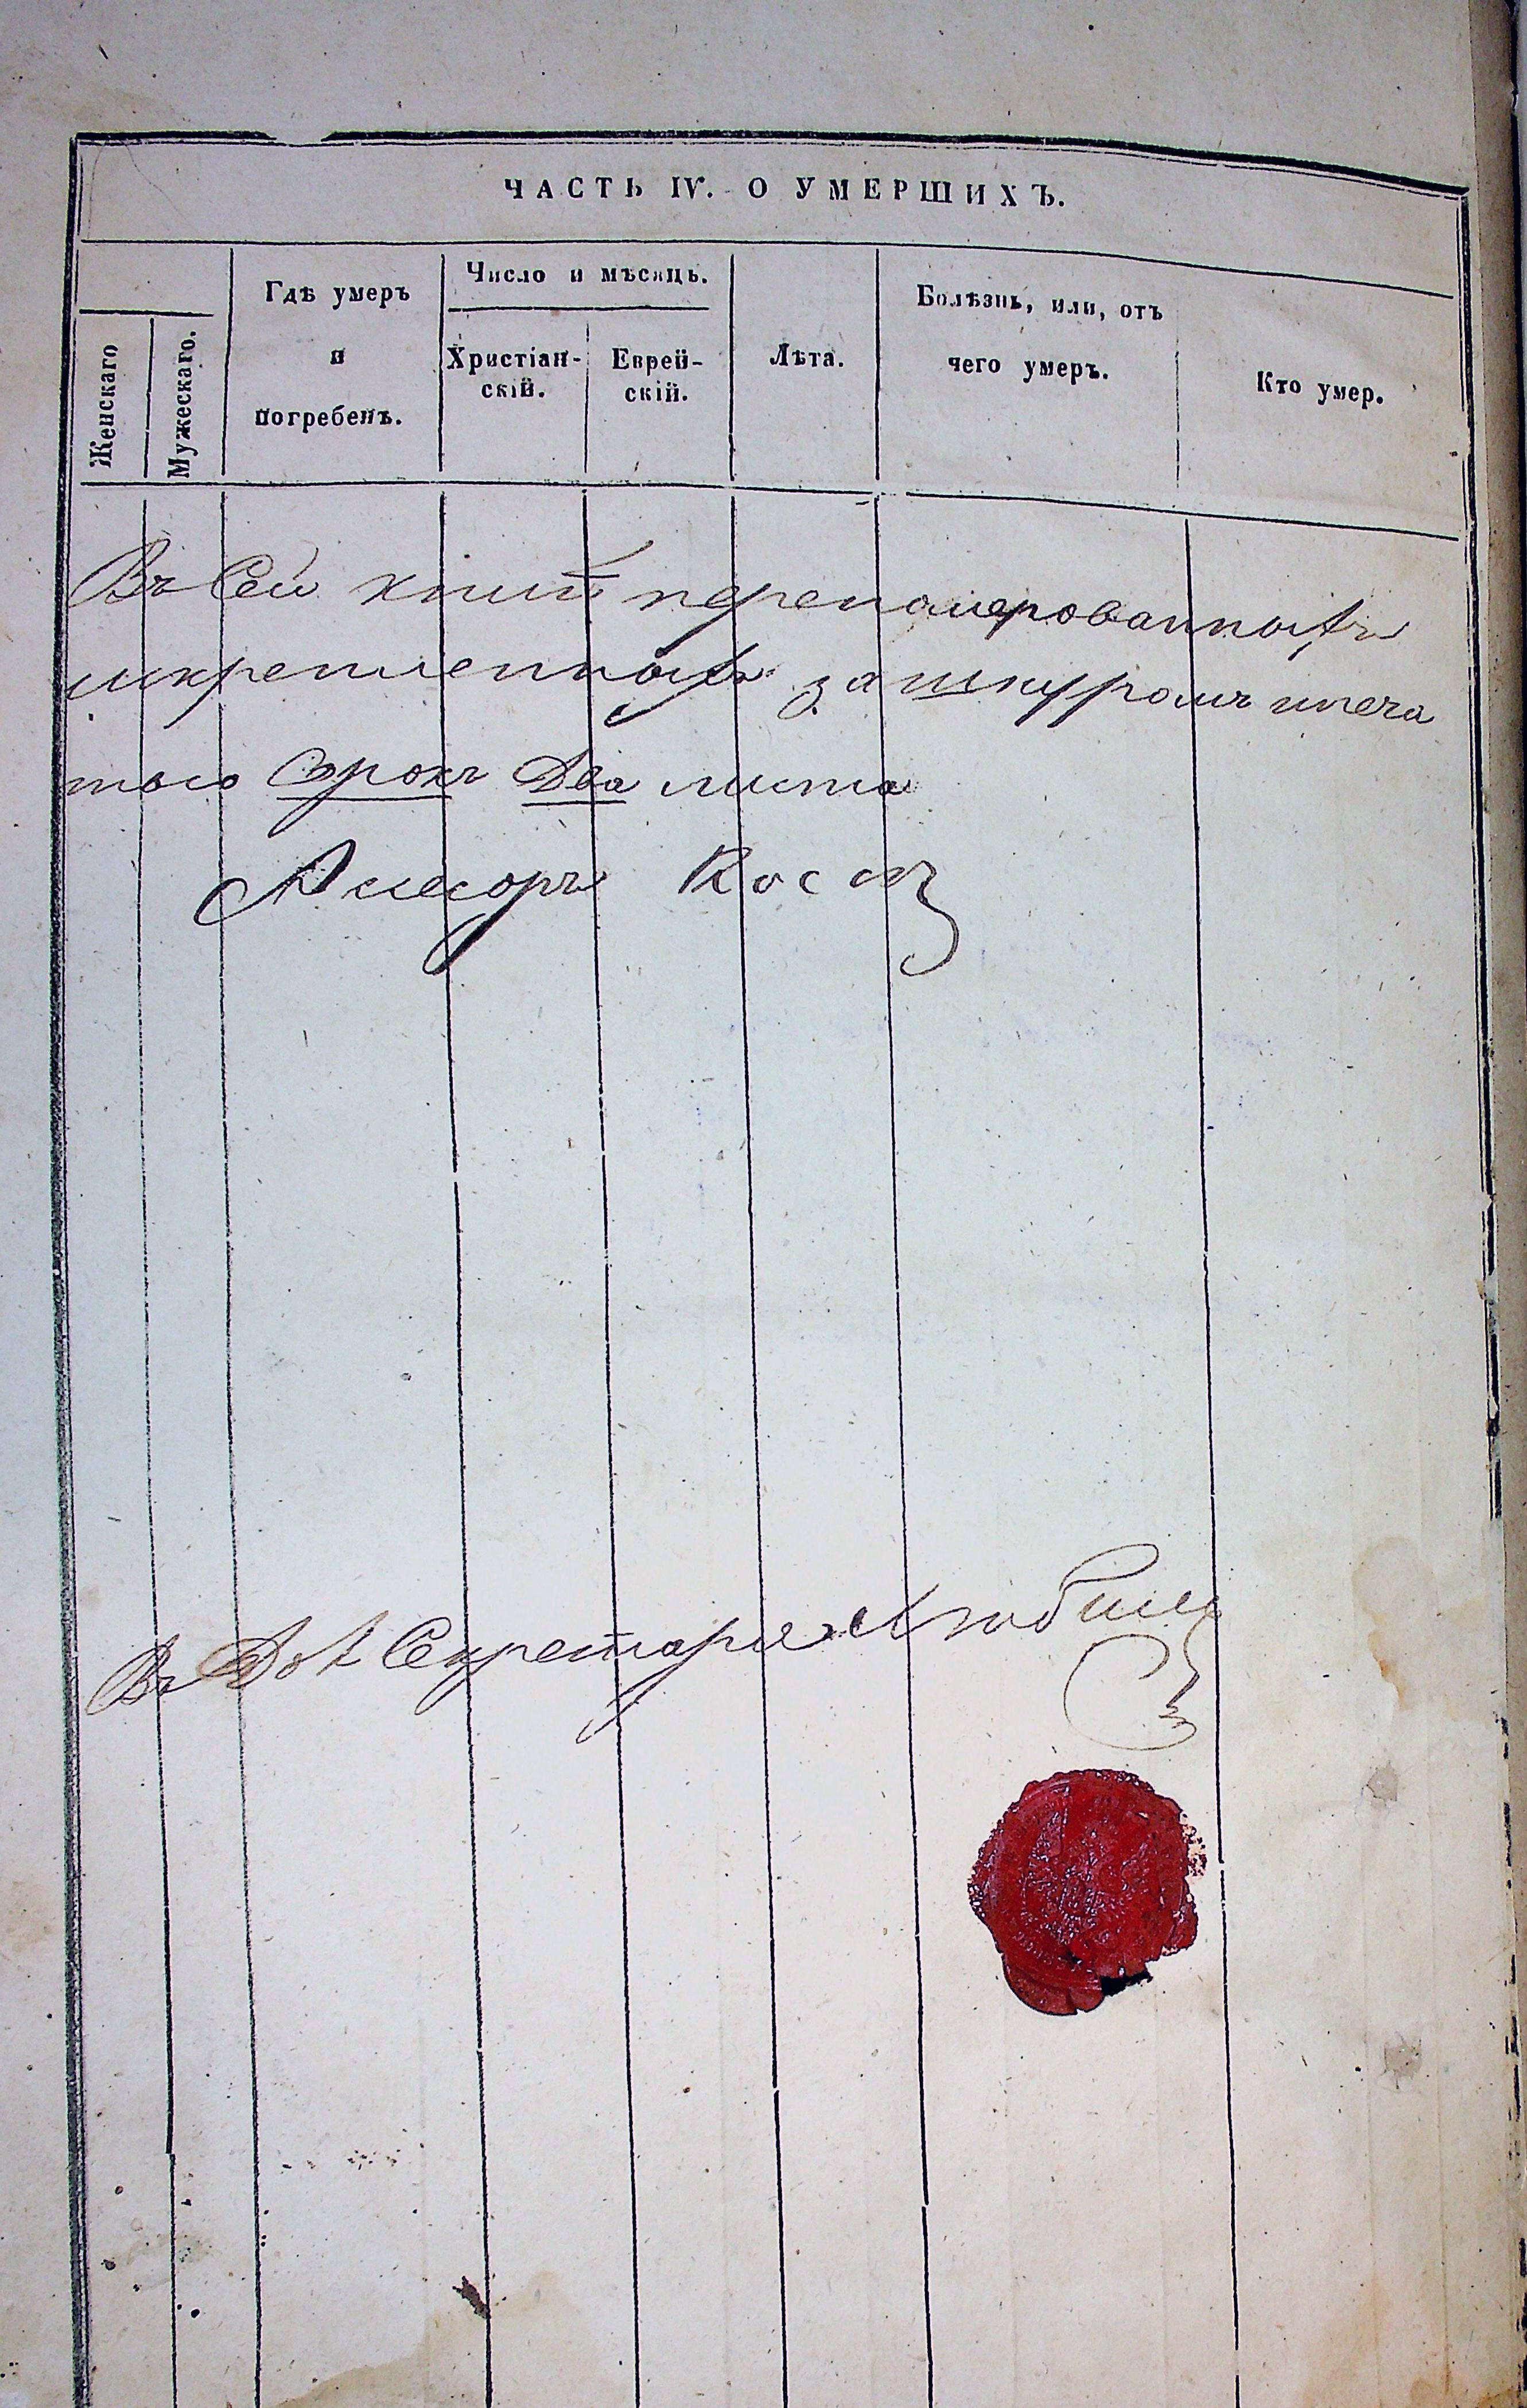 ЧАСТЬ IV. О УМЕРШИХЪ.
Женскаго
Мужескаго.
Гдѣ умеръ
и
погребенъ.
Число и мѣсяцъ.
Христіан-
скій.
Еврей-
скій.
Лѣта.
Болѣзнь, или, отъ
чего умеръ.
Кто умер.
Въ Сей книгѣ перенамерованныхъ
искрепленныхъ зашнуромъ ипеча
тью Сорокъ Два листа
В Д Секретаря